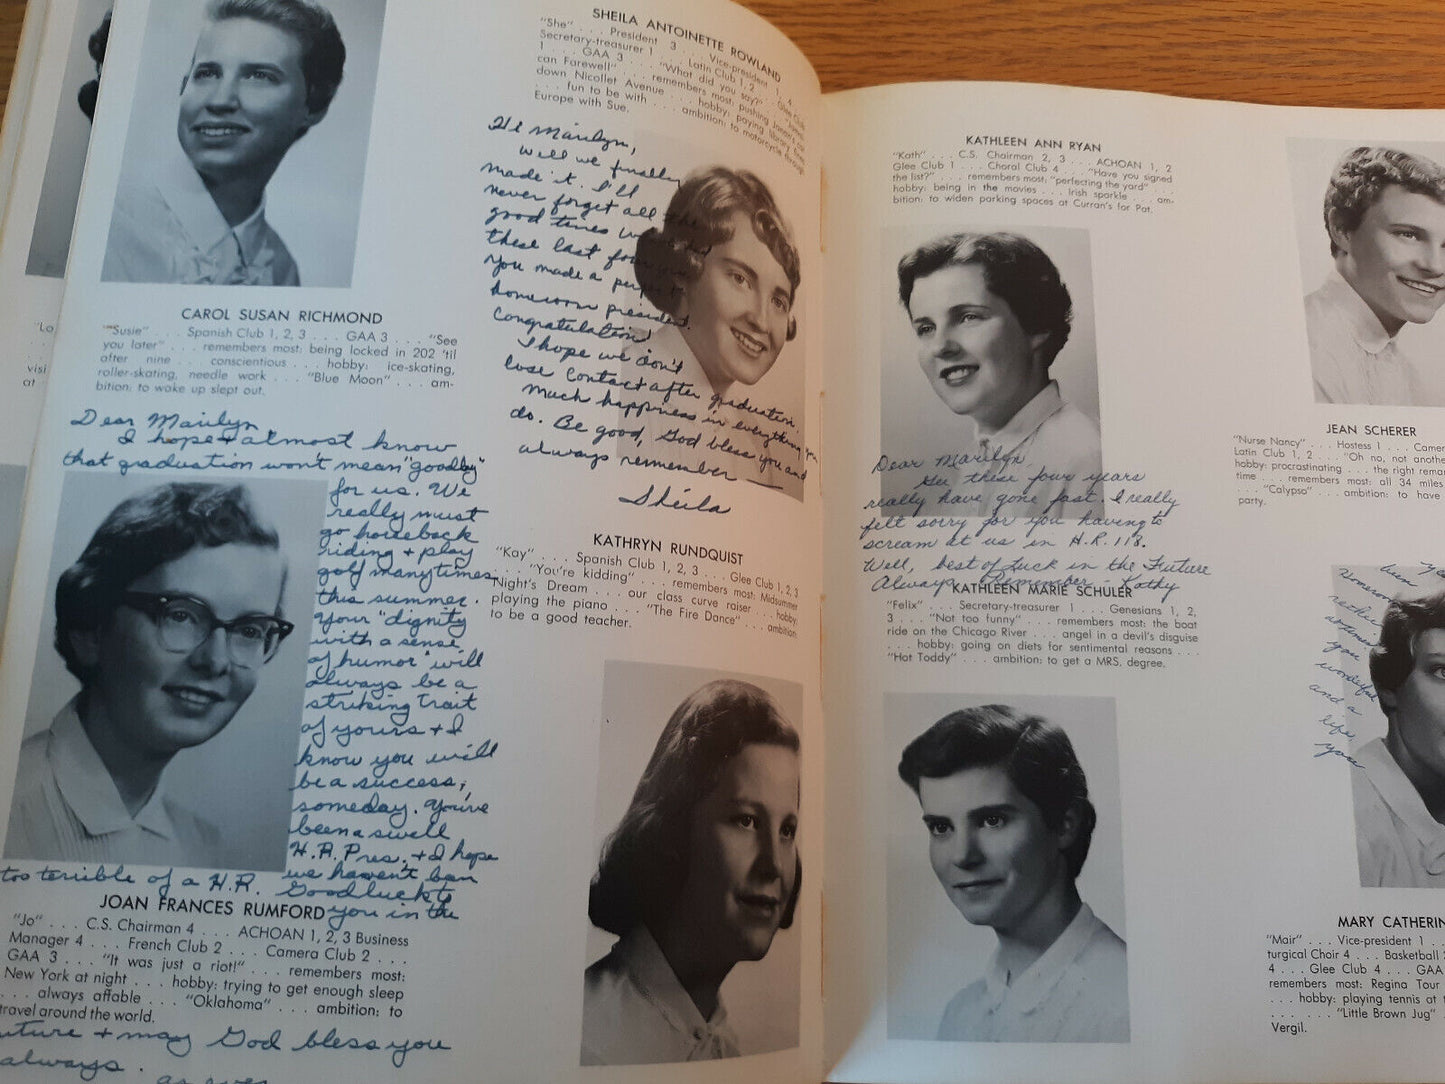 CAROL SUSAN RICHMOND
"Susie" . . . Spanish Club 1, 2, 3 . . . GAA 3 . . . "See
you later" . . . remembers most: being locked in 202 'til
after nine . . . conscientious . . . hobby: ice-skating,
roller-skating, needle work . . . "Blue Moon" . . . am-
bition: to wake up slept out.
Dear Marilyn
I hope + almost know
that graduation won't mean "goodby"
for us. We
really must
go horseback
riding + play
golf many times
this summer.
Your "dignity
with a sense
of humor" will
always be a
striking trait
of yours + I
know you will
be a success,
someday. You've
been a swell
H.R. Pres. + I hope
we haven't been
too terrible of a H.R.
Good luck to
you in the
JOAN FRANCES RUMFORD
"Jo" . . . C.S. Chairman 4 . . . ACHOAN 1, 2, 3 Business
Manager 4 . . . French Club 2 . . . Camera Club 2 . . .
GAA 3 . . . "It was just a riot!" . . . remembers most:
New York at night . . . hobby: trying to get enough sleep
. . . always affable . . . "Oklahoma" . . . ambition: to
travel around the world.
uture + may God bless you
always.
SHEILA ANTOINETTE ROWLAND
"She" . . . President 3 . . . Vice-president 1, 4 . . .
Secretary-treasurer 1 . . . Latin Club 1, 2 . . . Glee Club
1 . . . GAA 3 . . . "What did you say?" . . .
can Farewell" . . . remembers most: pushing Joanne's car
down Nicollet Avenue . . . hobby: paying library fines
. . . fun to be with . . . ambition: to motorcycle through
Europe with Sue.
Hi Marilyn,
Well we finally
made it. I'll
never forget all the
good times we had
these last four
You made a perfect
homeroom president.
Congratulations
I hope we don't
lose contact after graduation.
Much happiness in everything you
do. Be good, God bless you and
always remember —
Sheila
KATHRYN RUNDQUIST
"Kay" . . . Spanish Club 1, 2, 3 . . . Glee Club 1, 2, 3
. . . "You're kidding" . . . remembers most: Midsummer
Night's Dream . . . our class curve raiser . . . hobby:
playing the piano . . . "The Fire Dance" . . . ambition:
to be a good teacher.
KATHLEEN ANN RYAN
"Kath" . . . C.S. Chairman 2, 3 . . . ACHOAN 1, 2
Glee Club 1 . . . Choral Club 4 . . . "Have you signed
the list?" . . . remembers most: "perfecting the yard" . . .
hobby: being in the movies . . . Irish sparkle . . . am-
bition: to widen parking spaces at Curran's for Pat.
Dear Marilyn,
Gee these four years
really have gone fast. I really
felt sorry for you having to
scream at us in H.R. 118.
Well, best of luck in the Future
Always Remember - Kathy
KATHLEEN MARIE SCHULER
"Felix" . . . Secretary-treasurer 1 . . . Genesians 1, 2,
3 . . . "Not too funny" . . . remembers most: the boat
ride on the Chicago River . . . angel in a devil's disguise
. . . hobby: going on diets for sentimental reasons . . .
"Hot Toddy" . . . ambition: to get a MRS. degree.
JEAN SCHERER
"Nurse Nancy" . . . Hostess 1 . . . Camer
Latin Club 1, 2 . . . "Oh no, not anothe
hobby: procrastinating . . . the right remar
time . . . remembers most: all 34 miles
. . . "Calypso" . . . ambition: to have
party.
you
wonderful
and a
life
you
MARY CATHERIN
"Mair" . . . Vice-president 1 . .
turgical Choir 4 . . . Basketball 2
4 . . . Glee Club 4 . . . GAA
remembers most: Regina Tour
. . . hobby: playing tennis at t
. . . "Little Brown Jug"
Vergil.